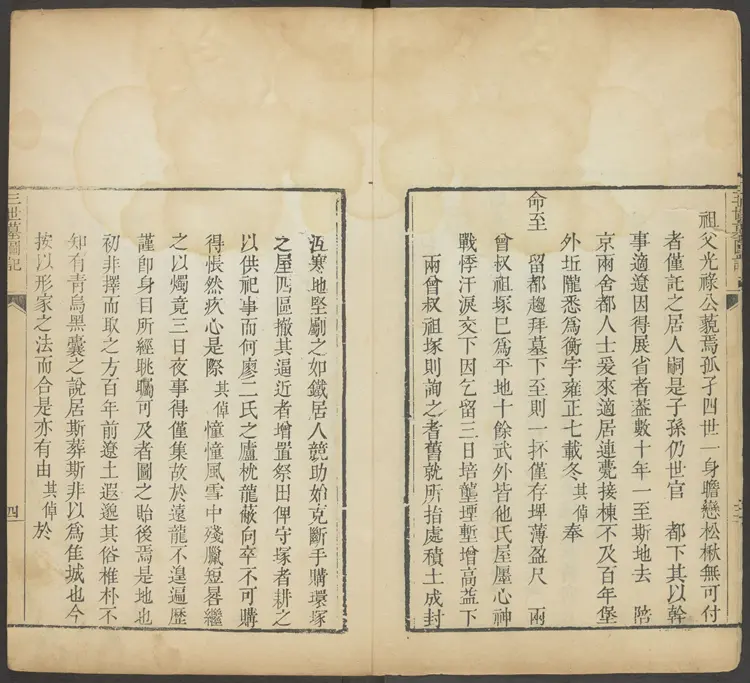 祖父光祿公藐焉孤孑四世一身瞻戀松楸無可付
者僅託之居人嗣是子孫仍世官　都下其以幹
事適遼因得展省者葢數十年一至斯地去　陪
京兩舍都人士爰來適居連甍接棟不及百年堡
外坵隴悉爲衡宇雍正七載冬其倬奉
命至　留都趨拜墓下至則一抔僅存埤薄盈尺　兩
曾叔祖塚巳爲平地十餘武外皆他氏屋廛心神
戰悸汗淚交下因乞留三日培壟堙塹增高葢下
兩曾叔祖塚則詢之耆舊就所指處積土成封
沍寒地堅劚之如鐵居人競助始克斷手購環塚
之屋四區撤其逼近者增置祭田俾守塚者耕之
以供祀事而何廖二氏之廬枕龍蔽向卒不可購
得悵然疚心是際其倬憧憧風雪中殘臘短晷繼
之以燭竟三日夜事得僅集故於遠龍不遑遍歷
謹卽身目所經眺矚可及者圖之貽後焉是地也
初非擇而取之方百年前遼土遐邈其俗椎朴不
知有青烏黑囊之說居斯葬斯非以爲佳城也今
按以形家之法而合是亦有由其倬於
三世墓圖記
四